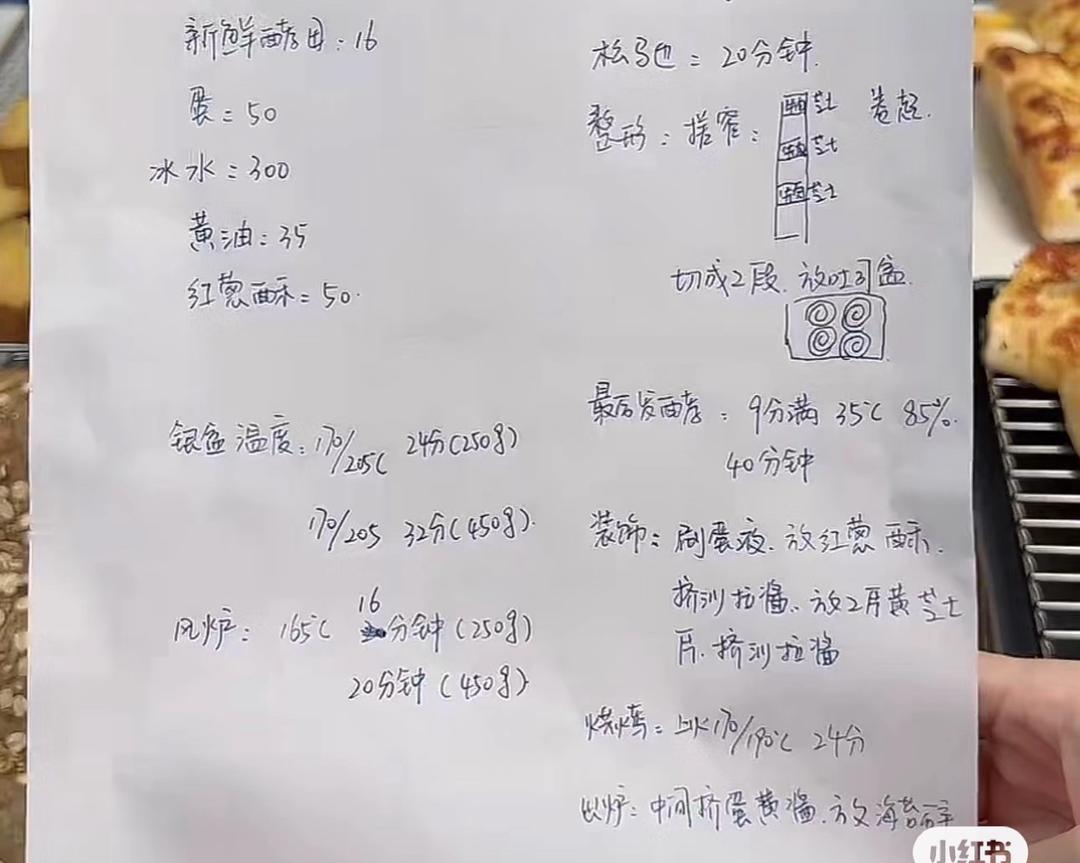 新鲜酵母：16
蛋：50
冰水：300
黄油：35
红葱酥：50.
银盒温度：170/205℃ 24分(250g)
170/205 32分(450g).
风炉：165℃ 16分钟(250g)
20分钟(450g)
松弛：20分钟.
整形：搓窄： 芝士 卷起.
芝士
芝士
切成2段.放吐司盒.
最后发酵：9分满 35℃ 85%.
40分钟
装饰：刷蛋液.放红葱酥.
挤沙拉酱、放2片黄芝士
片.挤沙拉酱
烘烤：上火170/190℃ 24分
出炉：中间挤蛋黄酱.放海苔
小红书